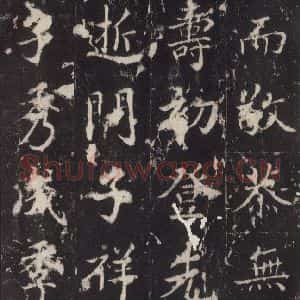 而敬恭無
壽初登先
逝子祥
子秀季
Shufawang.cn